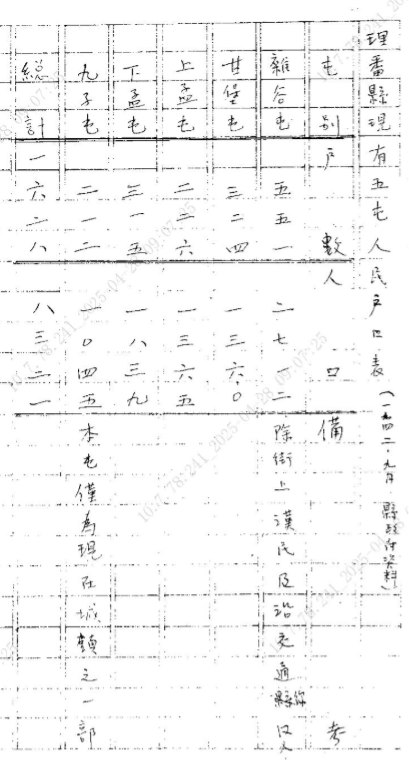 理番縣現有五屯人民戶口表（一九四二·九月 縣政府資料）
屯別 戶數 人口 備考
雜谷屯 五五一 二七一二 除街上漢民及沿交通 汉人
甘堡屯 三二四 一三六〇
上孟屯 二二六 一三六五
下孟屯 三一五 一八三九
九子屯 二一二 一〇四五 本屯僅為現在城 之一部
總計 一六二八 八三二一